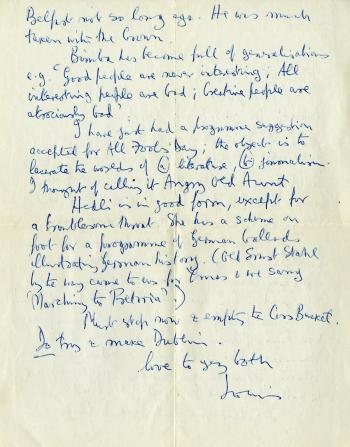 Belfast not so long ago. He was much
taken with the Crown.
Bimba has become full of generalisations
e.g. 'Good people are never interesting; All
interesting people are bad; Creative people are
atrociously bad'.
I have just had a programme suggestion
accepted for All Fools Day; the object is to
lacerate the worlds of (a) literature, (b) journalism.
I thought of calling it Angry Old Aunt.
Hedli is in good form, except for
a troublesome throat. She has a scheme on
foot for a programme of German ballads
illustrating German history. (Old Ernst Stahl
by the way came to us for Xmas & we sang
'Marching to Pretoria'.)
Must stop now & empty the Cess Bucket.
Do try & make Dublin.
love to you both
Louis